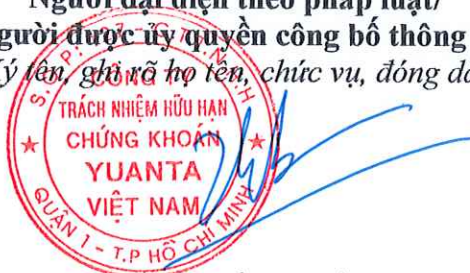 Người đại diện theo pháp luật/
gười được ủy quyền công bố thông
ý tên, ghi rõ họ tên, chức vụ, đóng dấ
CÔNG TY
TRÁCH NHIỆM HỮU HẠN
CHỨNG KHOÁN
YUANTA
VIỆT NAM
QUẬN 1 - T.P HỒ CHÍ MINH